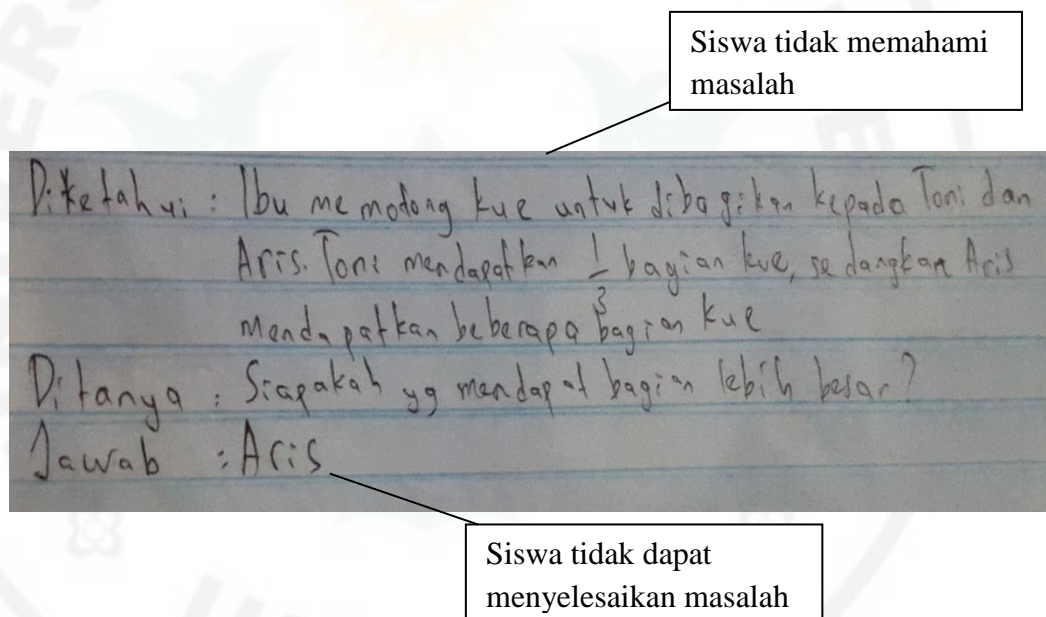 Siswa tidak memahami
masalah
Diketahui : Ibu memotong kue untuk dibagikan kepada Toni dan
Aris. Toni mendapatkan 1/3 bagian kue, sedangkan Aris
Mendapatkan beberapa bagian kue
Ditanya : Siapakah yg mendapat bagian lebih besar?
Jawab : Aris
Siswa tidak dapat
menyelesaikan masalah